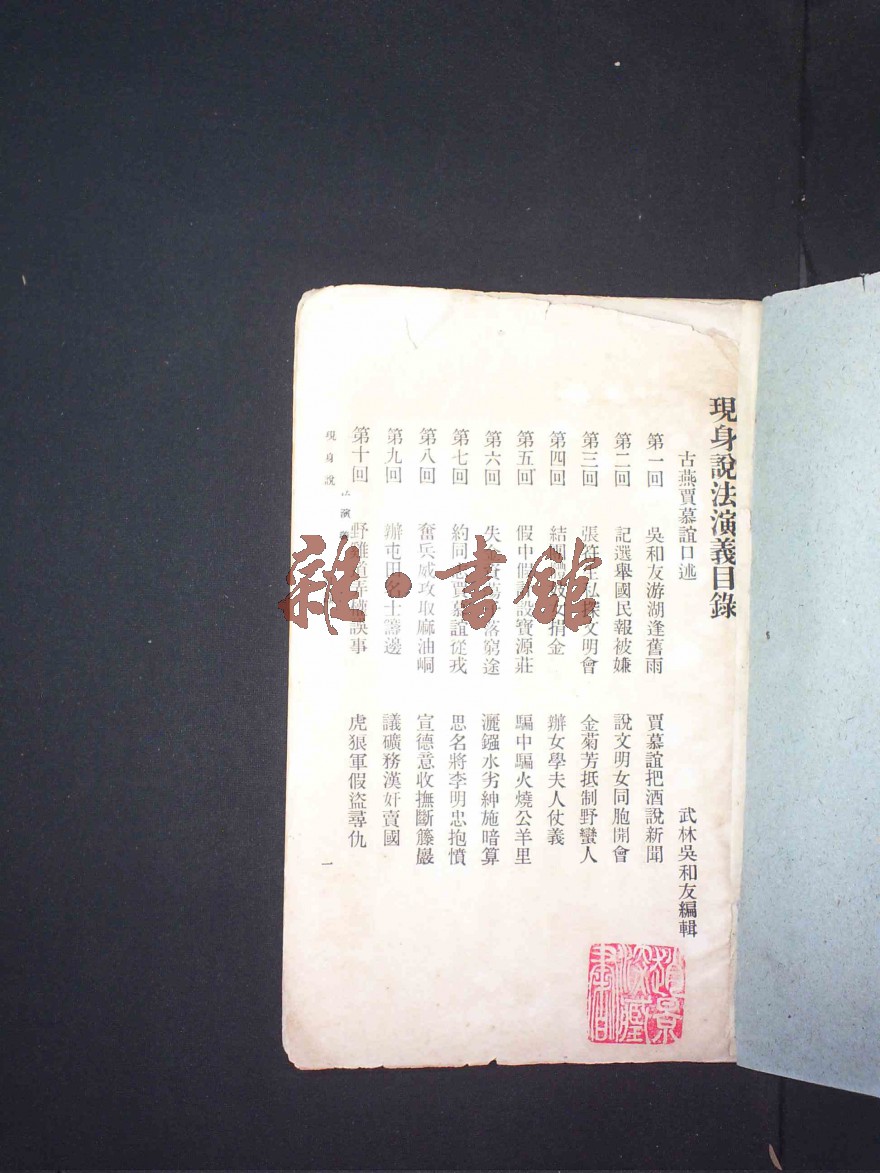 現身說法演義目錄
古燕賈慕誼口述 武林吳和友編輯
第一回 吳和友游湖逢舊雨 賈慕誼把酒說新聞
第二回 記選舉國民報被嫌 說文明女同胞開會
第三回 張 生私探文明會 金菊芳抵制野蠻人
第四回 結 捐金 辦女學夫人仗義
第五回 假中假 設寶源莊 騙中騙火燒公羊里
第六回 失 落窮途 灑鏹水劣紳施暗算
第七回 約同志賈慕誼從戎 思名將李明忠抱憤
第八回 奮兵威攻取麻油峒 宣德意收撫斷籐巖
第九回 辦屯田名士籌邊 議礦務漢奸賣國
第十回 野雞道弄 誤事 虎狼軍假盜尋仇
現身說法演義
一
雜·書館
趙景深藏書